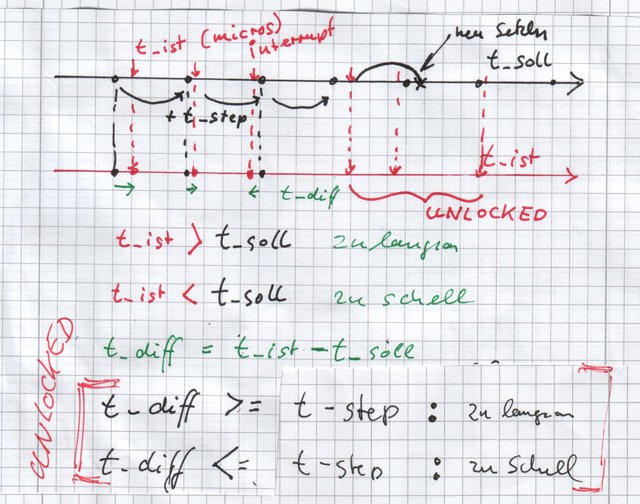 t_ist (micros) interrupt
neu setzen
t_soll
+ t_step
t_ist
t_diff
UNLOCKED
t_ist > t_soll zu langsam
t_ist < t_soll zu schell
t_diff = t_ist - t_soll
UNLOCKED
t_diff >= t-step : zu langsam
t_diff <= t-step : zu Schell